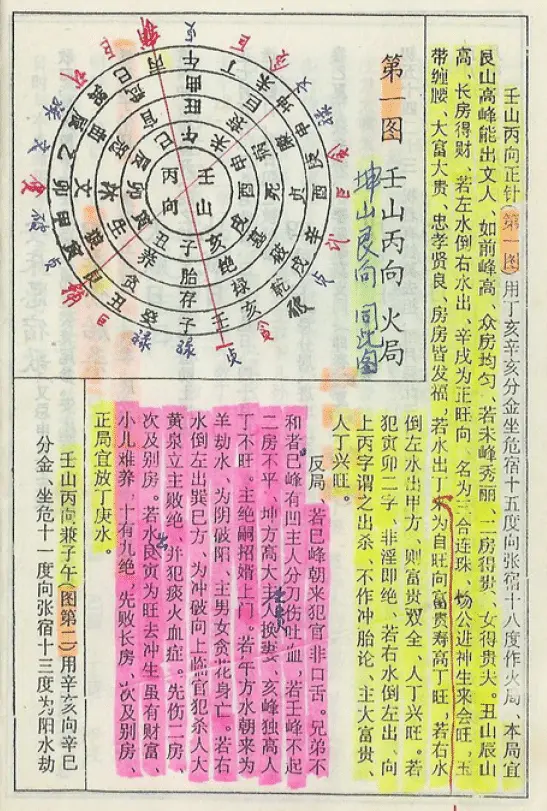 壬山丙向正针（第一图）用丁亥辛亥分金坐危宿十五度向张宿十八度作火局、本局宜
艮山高峰能出文人、如前峰高、众房均匀、若未峰秀丽、二房得贵、女得贵夫。丑山辰山
高、长房得财、若左水倒右水出、辛戌为正旺向、名为三合连珠、杨公进神生来会旺、玉
带缠腰、大富大贵、忠孝贤良、房房皆发福、若水出丁未为自旺向富贵寿高丁旺，若右水
第一图 壬山丙向 火局
坤山艮向 同此图
壬山
丙向
午未申酉戌亥子丑寅卯辰巳
病死墓绝胎养生沐冠官
倒左水出甲方、则富贵双全、人丁兴旺。若
犯寅卯二字、非淫即绝、若右水倒左出、向
上丙字谓之出杀、不作冲胎论、主大富贵、
人丁兴旺。
反局 若巳峰朝来犯官非口舌。兄弟不
和者巳峰有凹主人分刀伤吐血，若壬峰不起
二房不平、坤方高大主人换妻、亥峰独高人
丁不旺。主绝嗣招婿上门。若午方水朝来为
羊劫水、为阴破阳、主男女贪花身亡。若右
水倒左出巽巳方、为冲破向上临官犯杀人大
黄泉立主败绝、并犯痰火血症。先伤二房、
次及别房。若水艮寅为旺去冲生虽有财富、
小儿难养、十有九绝、先败长房、次及别房、
正局宜放丁庚水。
壬山丙向兼子午（图第二）用辛亥向辛巳
分金、坐危十一度向张宿十三度为阳水劫